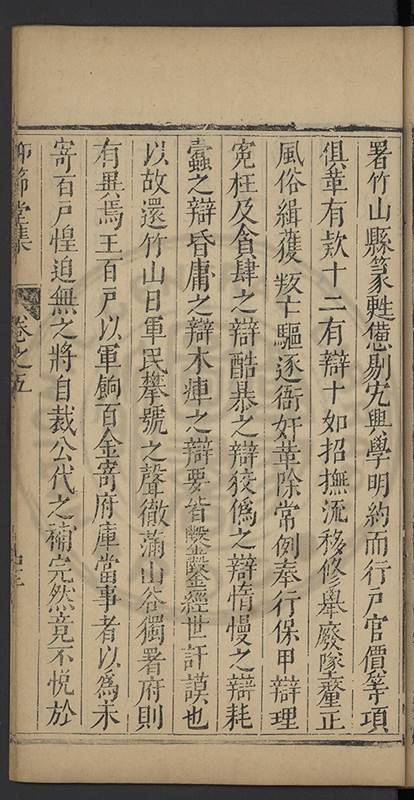 署竹山縣篆甦憊剔宄興學明約而行戶官價等項
俱革有款十二有辯十如招撫流移修舉廢墜釐正
風俗緝獲叛亡驅逐衙奸革除常例奉行保甲辯理
寃枉及貪肆之辯酷暴之辯狡偽之辯惰慢之辯耗
蠹之辯昏庸之辯木痺之辯要皆鑿鑿經世訏謨也
以故還竹山日軍民攀號之聲徹滿山谷獨署府則
有異焉王百戶以軍餉百金寄府庫當事者以為未
寄百戶惶迫無之將自裁公代之補完然竟不悅於
仰節堂集
卷之五